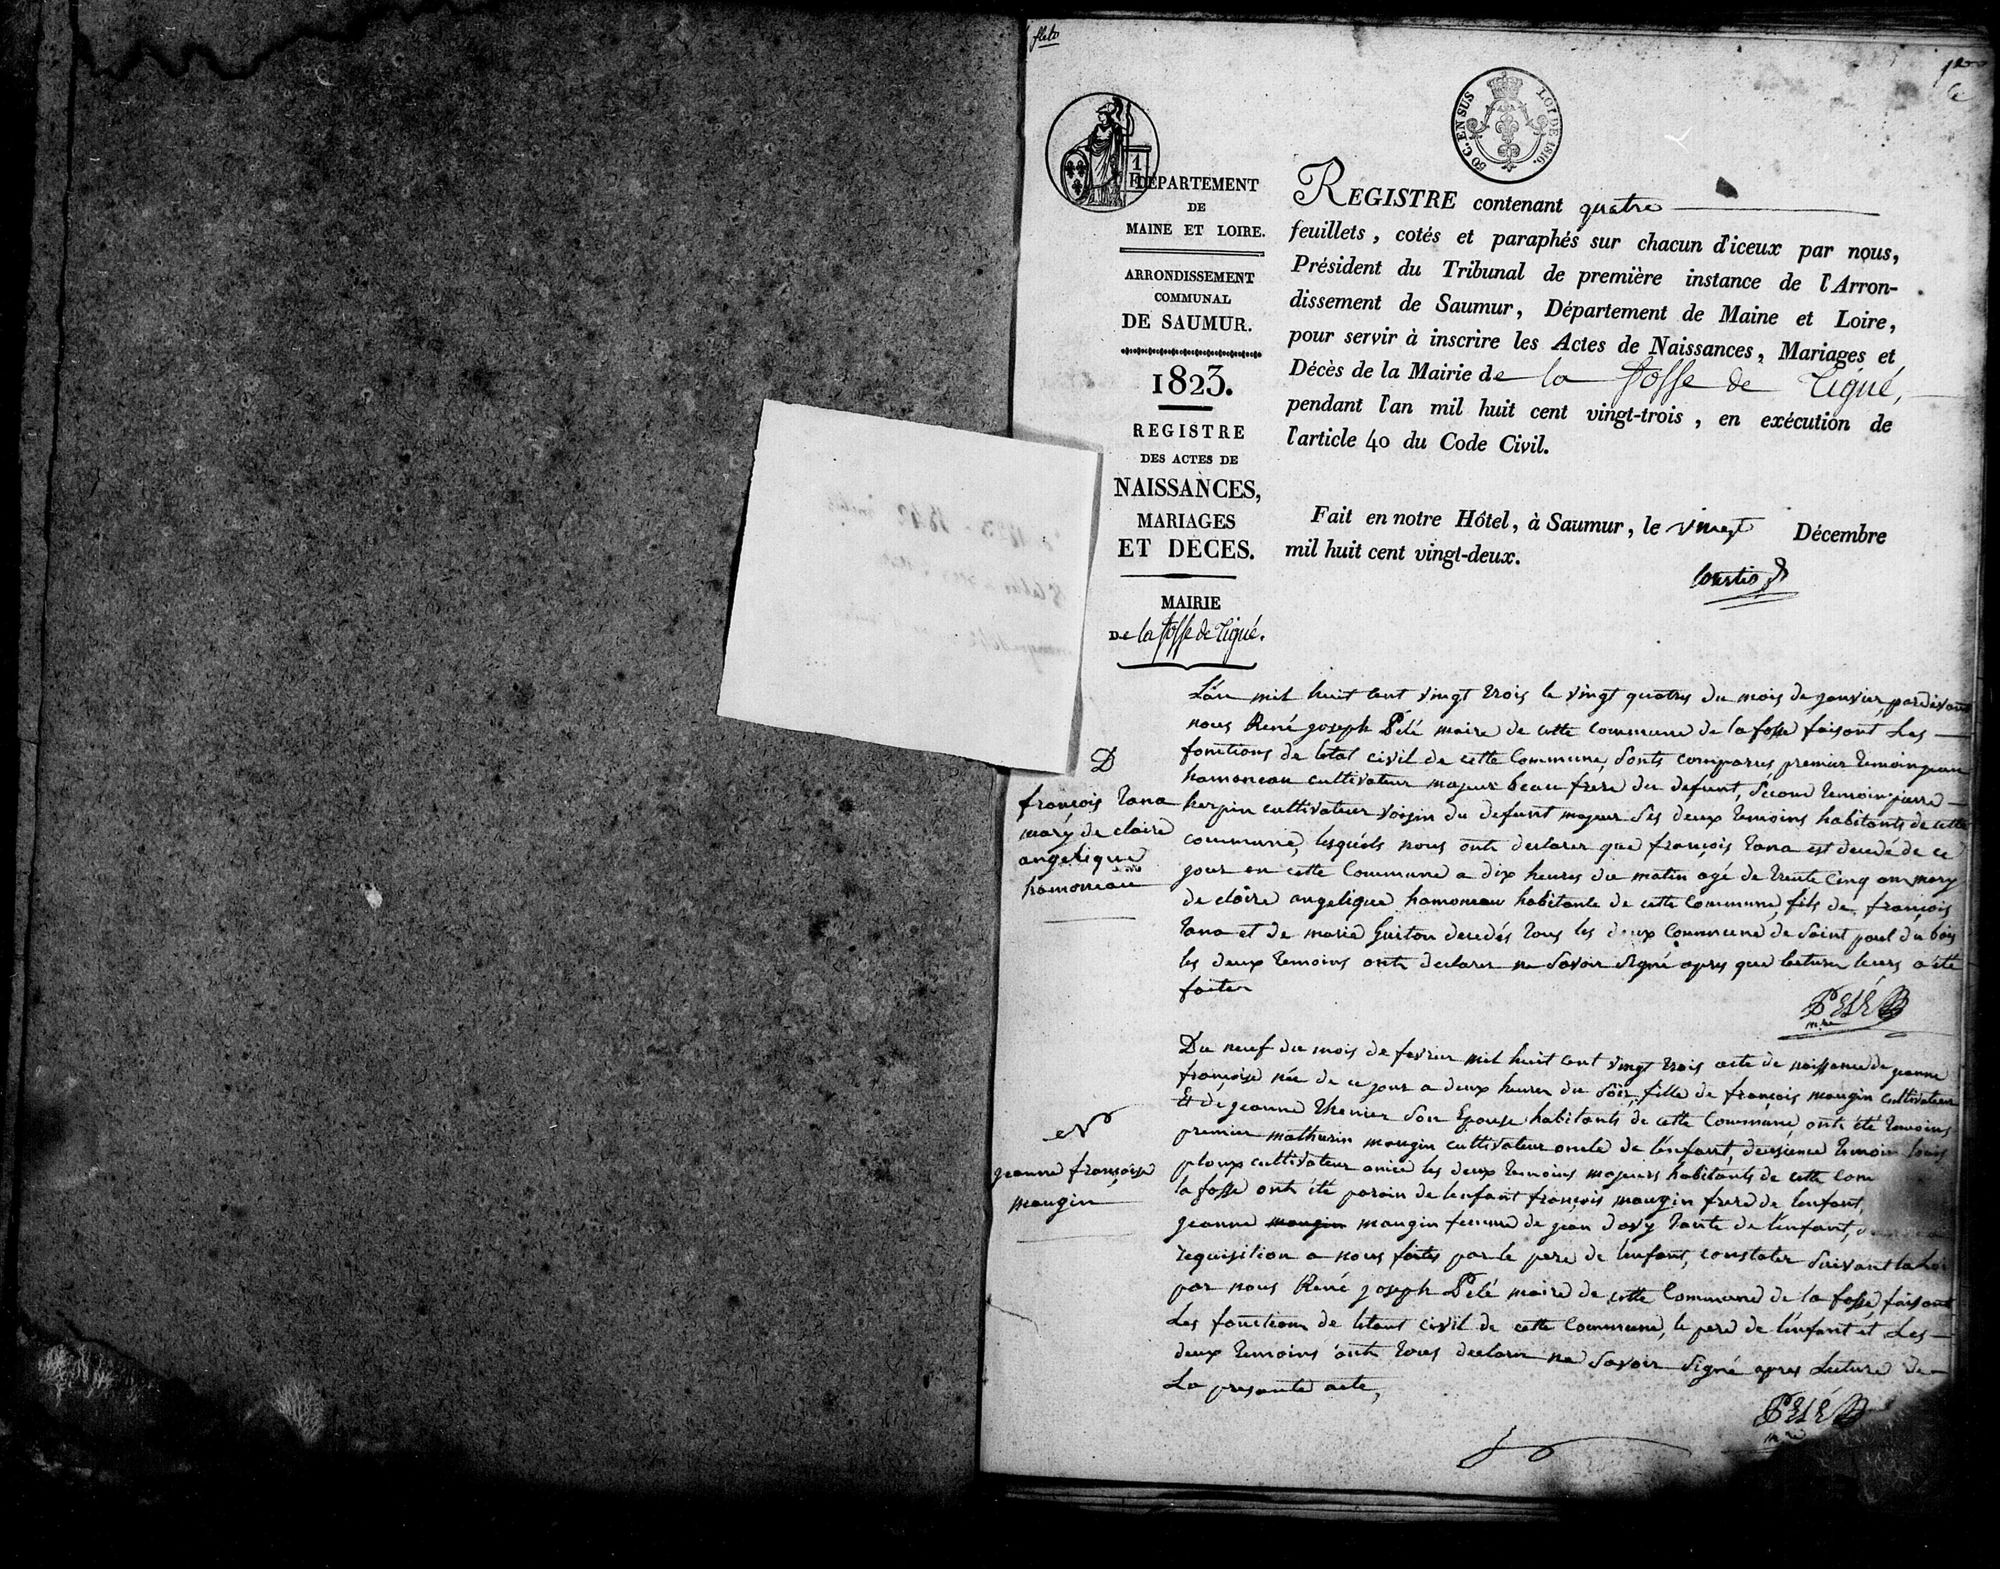 1er
50 C. EN SUS
LOI DE 1816.
DÉPARTEMENT
DE
MAINE ET LOIRE.
ARRONDISSEMENT
COMMUNAL
DE SAUMUR.
1823.
REGISTRE
DES ACTES DE
NAISSANCES,
MARIAGES
ET DÉCES.
MAIRIE
DE la fosse de Tigné.
REGISTRE contenant quatre
feuillets, cotés et paraphés sur chacun d'iceux par nous,
Président du Tribunal de première instance de l'Arron-
dissement de Saumur, Département de Maine et Loire,
pour servir à inscrire les Actes de Naissances, Mariages et
Décès de la Mairie de la fosse de Tigné,
pendant l'an mil huit cent vingt-trois, en exécution de
l'article 40 du Code Civil.
Fait en notre Hôtel, à Saumur, le vingt Décembre
mil huit cent vingt-deux.
D
françois Tana
mary de claire
angelique
hamoneau
L'an mil huit cent vingt trois le vingt quatres du mois de janvier, pardevant
nous René joseph Pelé maire de cette commune de la fosse faisant Les
fonctions de letat civil de cette Commune, sonts comparus premier temoin jean
hamoneau cultivateur majeur beau frere du defunt, second temoin pierre
herpin cultivateur voisin du defunt majeur les deux temoins habitants de cette
commune, lesquels nous onts declarer que françois Tana est decedé de ce
jour en cette Commune a dix heures du matin agé de trente cinq an mary
de claire angelique hamoneau habitante de cette Commune, fils de françois
Tana et de marie Guitou decedés tous les deux Commune de Saint paul du bois
les deux temoins onts declarer ne Savoir Signé apres que lecture leurs a été
faiter
PELÉ
mre
N
jeanne françoise
maugin
Du neuf du mois de fevrier mil huit cent vingt trois acte de naissance de jeanne
françoise née de ce jour a deux heures du Soir, fille de françois maugin cultivateur
Et de jeanne Thenier Son Epouse habitants de cette Commune, onts été temoins
premier mathurin maugin cultivateur oncle de l'enfant, deusieme temoin louis
ploux cultivateur amie les deux temoins majeurs habitants de cette com
la fosse onts été parain de lenfant françois maugin frere de lenfant,
jeanne maugin maugin femme de jean davy tante de l'enfant,
requisition a nous faites par le pere de lenfant, constater Suivant la Loi
par nous René joseph Pelé maire de cette Commune de la fosse, faisant
Les fonctions de letant civil de cette Commune, le pere de l'enfant et Les
deux temoins onts tous declarer ne Savoir Signé apres Lecture de
La presante acte,
PELÉ
mre